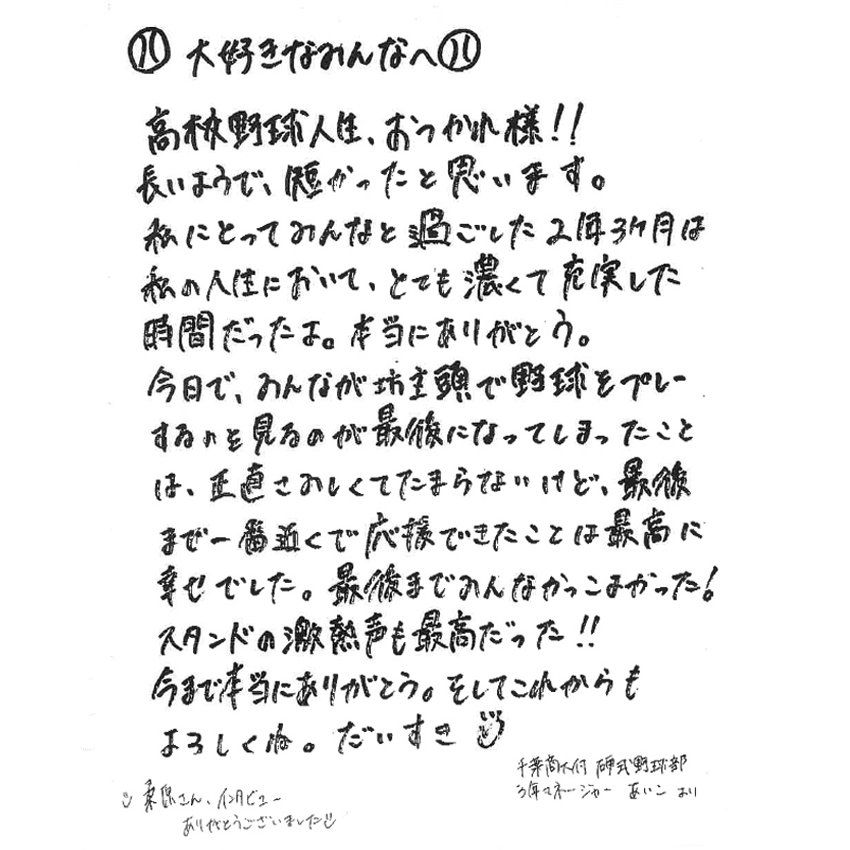 大好きなみんなへ
高校野球人生、おつかれ様!!
長いようで、短かったと思います。
私にとってみんなと過ごした2年3ヶ月は
私の人生において、とても濃くて充実した
時間だったよ。本当にありがとう。
今日で、みんなが坊主頭で野球をプレー
するのを見るのが最後になってしまったこと
は、正直さみしくてたまらないけど、最後
まで一番近くで応援できたことは最高に
幸せでした。最後までみんなかっこよかった!
スタンドの激熱声も最高だった!!
今まで本当にありがとう。そしてこれからも
よろしくね。だいすき
千葉商大付 硬式野球部
3年マネージャー あいこ より
さん、インタビュー
ありがとうございました